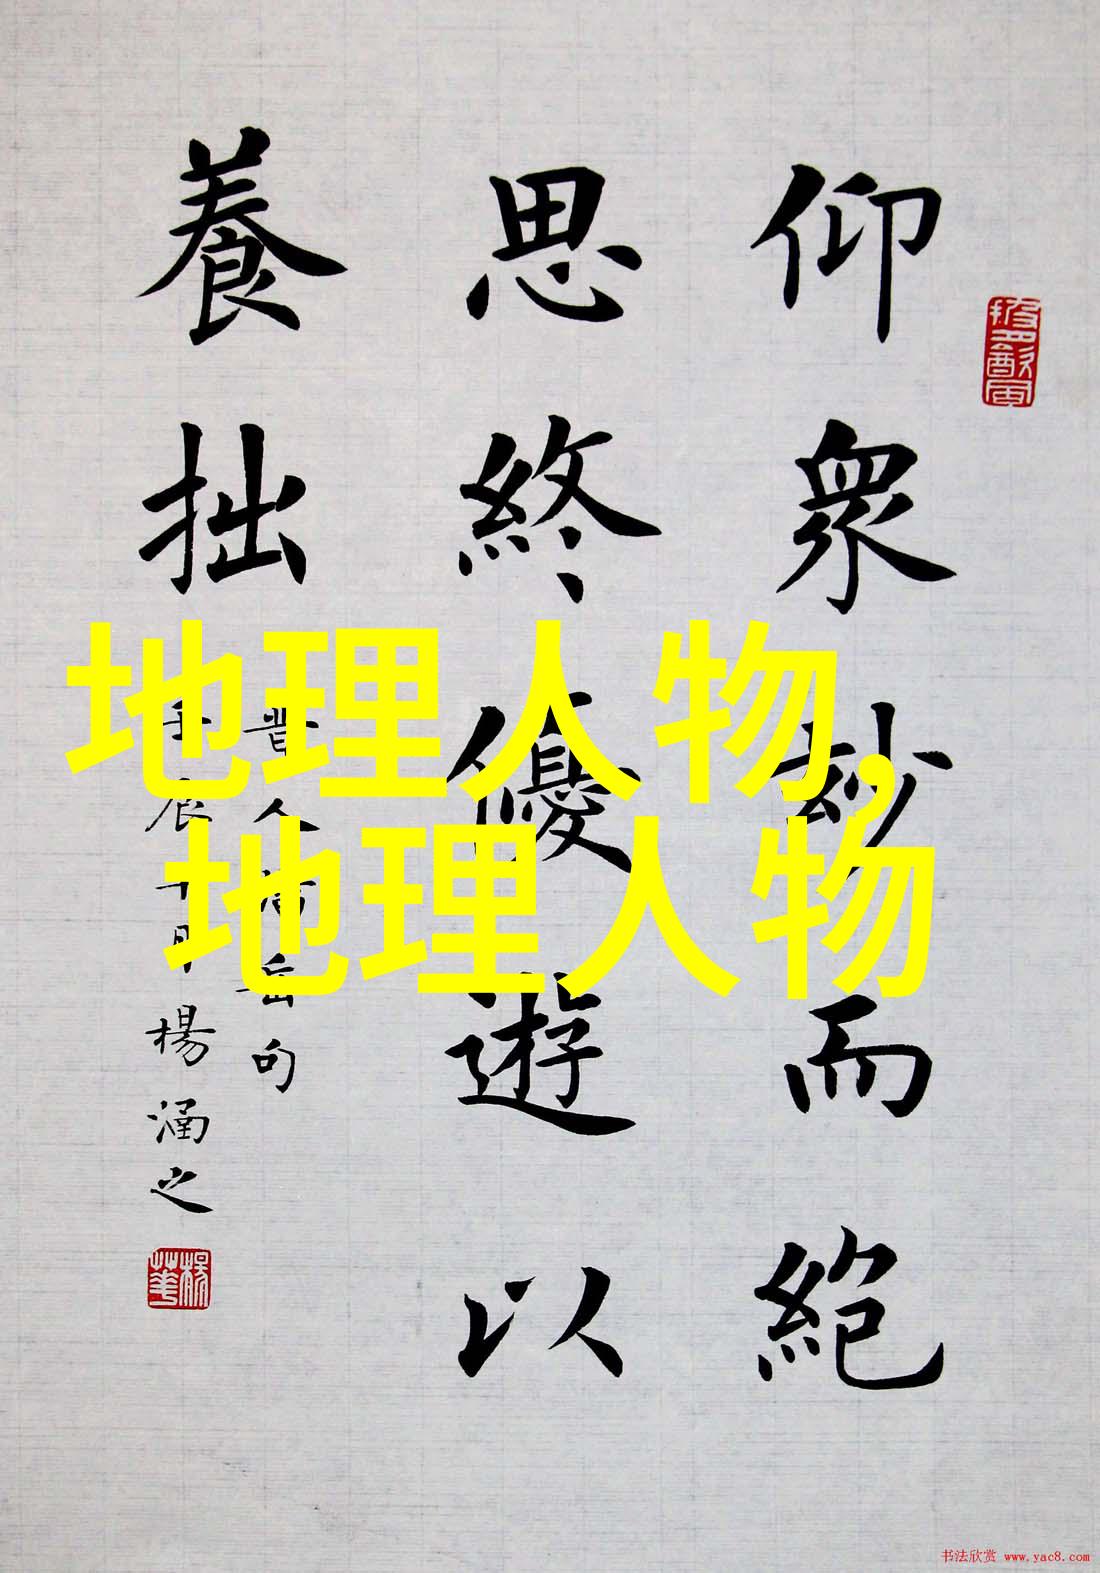 仰衆妙而絕
思終優遊以
養拙
晋人潘岳句
壬辰十月楊涵之
地理人物,
地理人物
书法欣赏 www.yac8.com